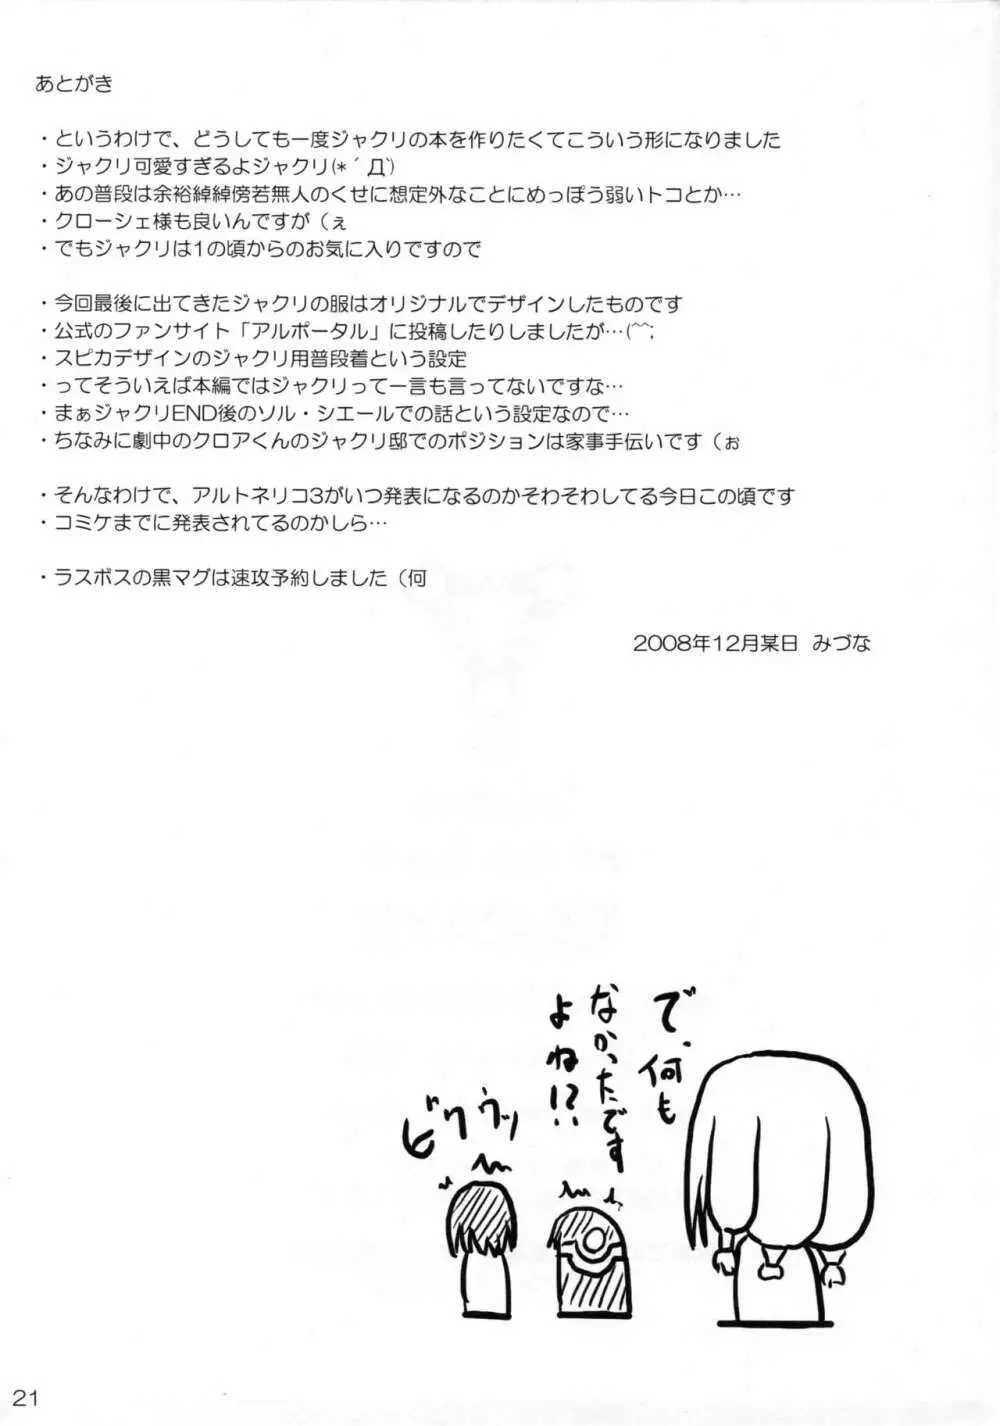 あとがき
・というわけで、どうしても一度ジャクリの本を作りたくてこういう形になりました
・ジャクリ可愛すぎるよジャクリ(*´Д`)
・あの普段は余裕綽綽傍若無人のくせに想定外なことにめっぽう弱いトコとか…
・クローシェ様も良いんですが（ぇ
・でもジャクリは1の頃からのお気に入りですので
・今回最後に出てきたジャクリの服はオリジナルでデザインしたものです
・公式のファンサイト「アルポータル」に投稿したりしましたが…(^^;
・スピカデザインのジャクリ用普段着という設定
・ってそういえば本編ではジャクリって一言も言ってないですな…
・まぁジャクリEND後のソル・シエールでの話という設定なので…
・ちなみに劇中のクロアくんのジャクリ邸でのポジションは家事手伝いです（ぉ
・そんなわけで、アルトネリコ3がいつ発表になるのかそわそわしてる今日この頃です
・コミケまでに発表されてるのかしら…
・ラスボスの黒マグは速攻予約しました（何
2008年12月某日 みづな
で、何も
なかったです
よね!?
ビクゥッ
21